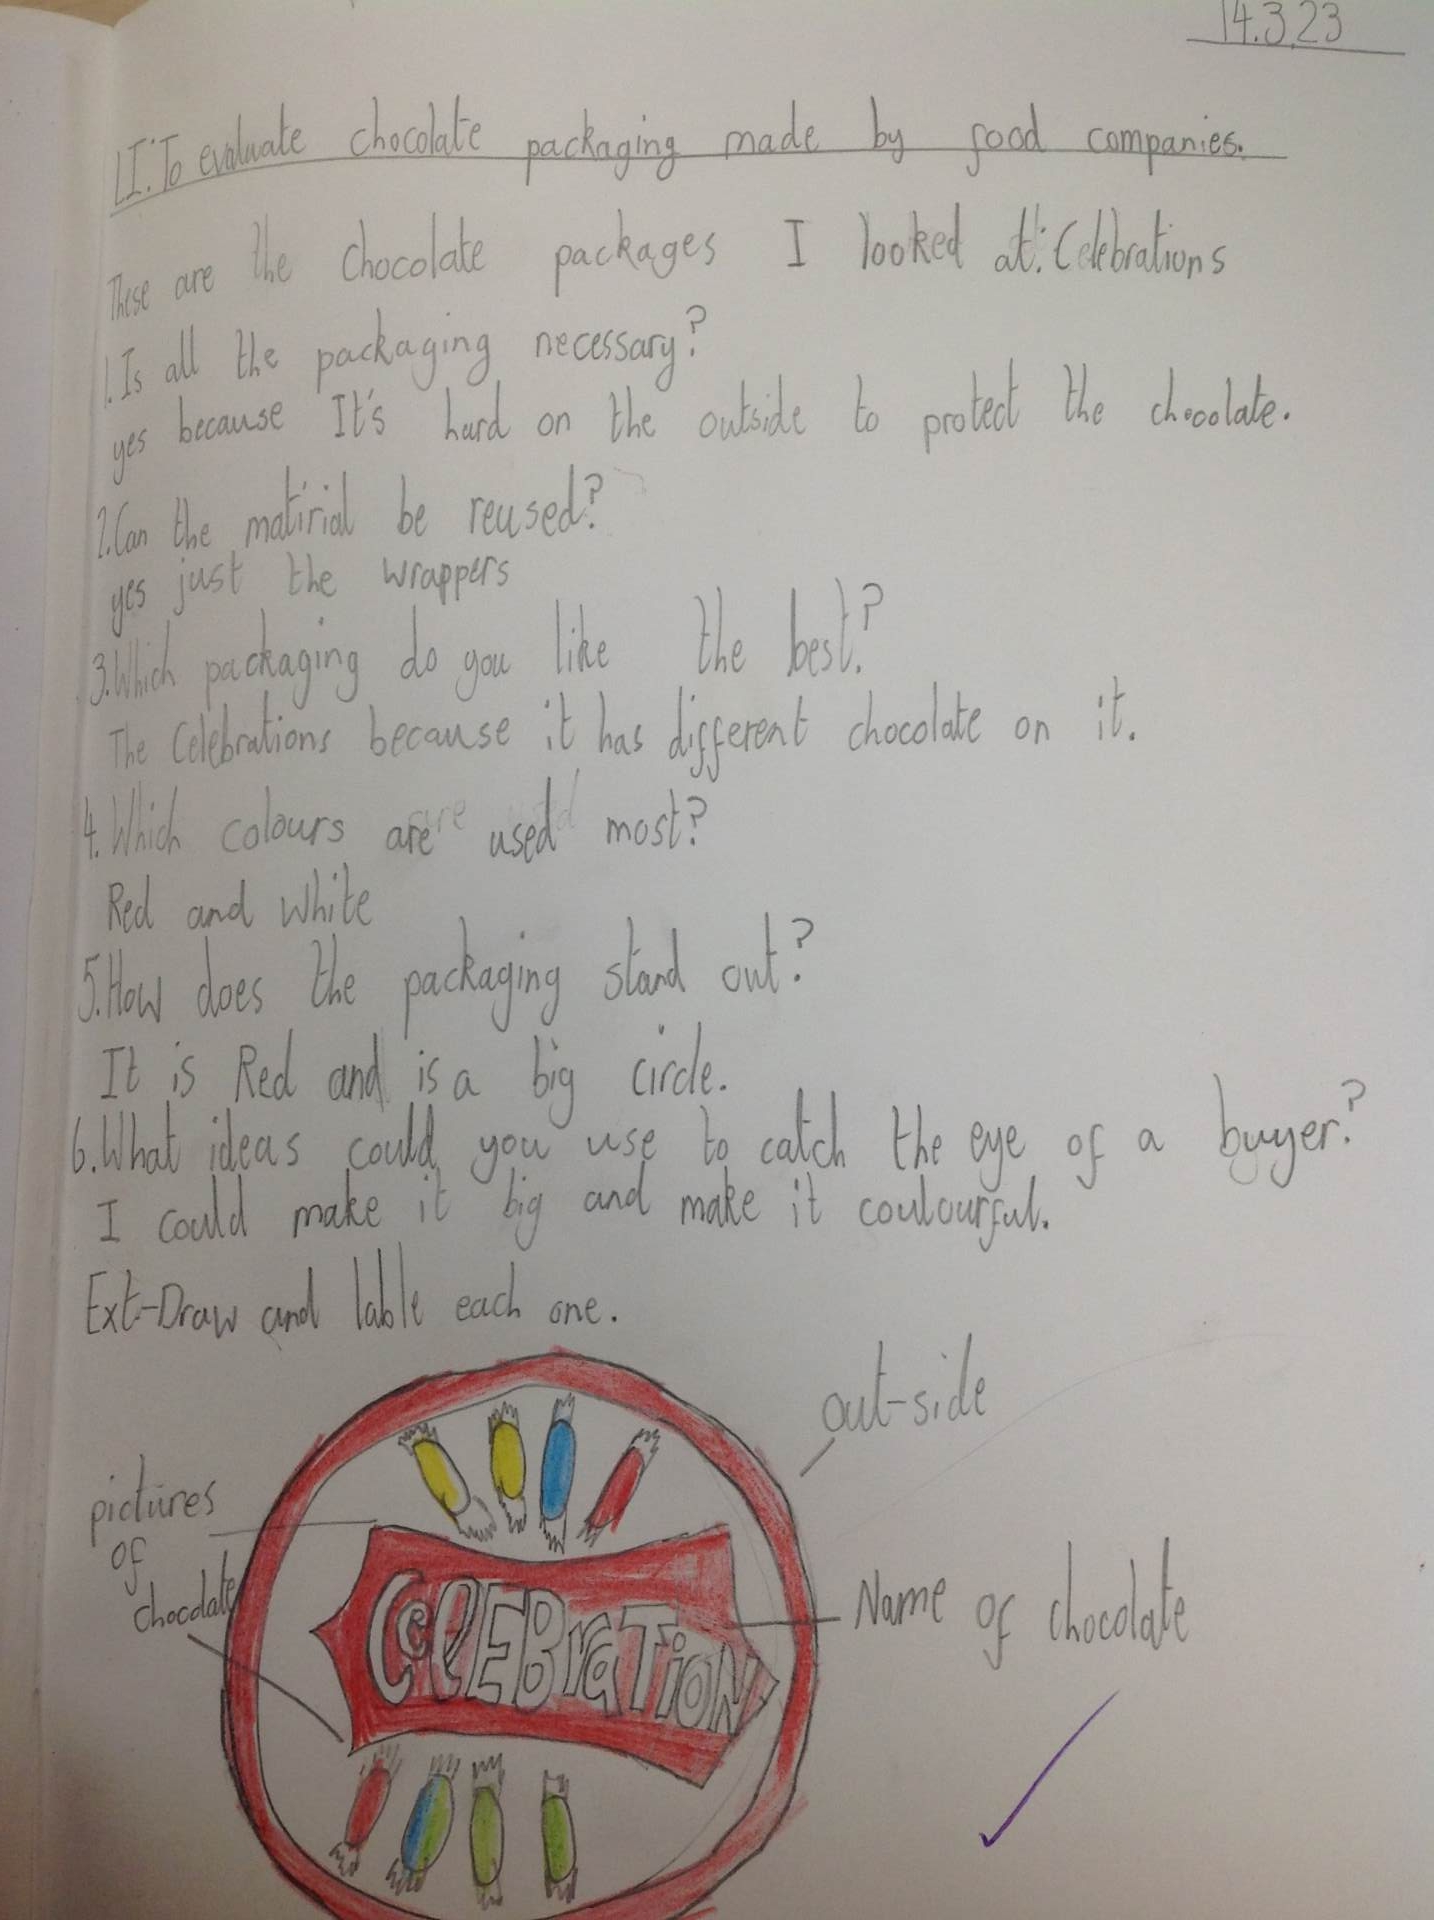 14.3.23
LI: To evaluate chocolate packaging made by food companies.
These are the chocolate packages I looked at: Celebrations
1. Is all the packaging necessary?
yes because It's hard on the outside to protect the chocolate.
2. Can the matirial be reused?
yes just the wrappers
3. Which packaging do you like the best?
The Celebrations because it has different chocolate on it.
4. Which colours are used most?
Red and white
5. How does the packaging stand out?
It is Red and is a big circle.
6. What ideas could you use to catch the eye of a buyer?
I could make it big and make it coulourful.
Ext-Draw and lable each one.
out-side
pictures
of
chocolate
CeLEBraTiON
Name of chocolate